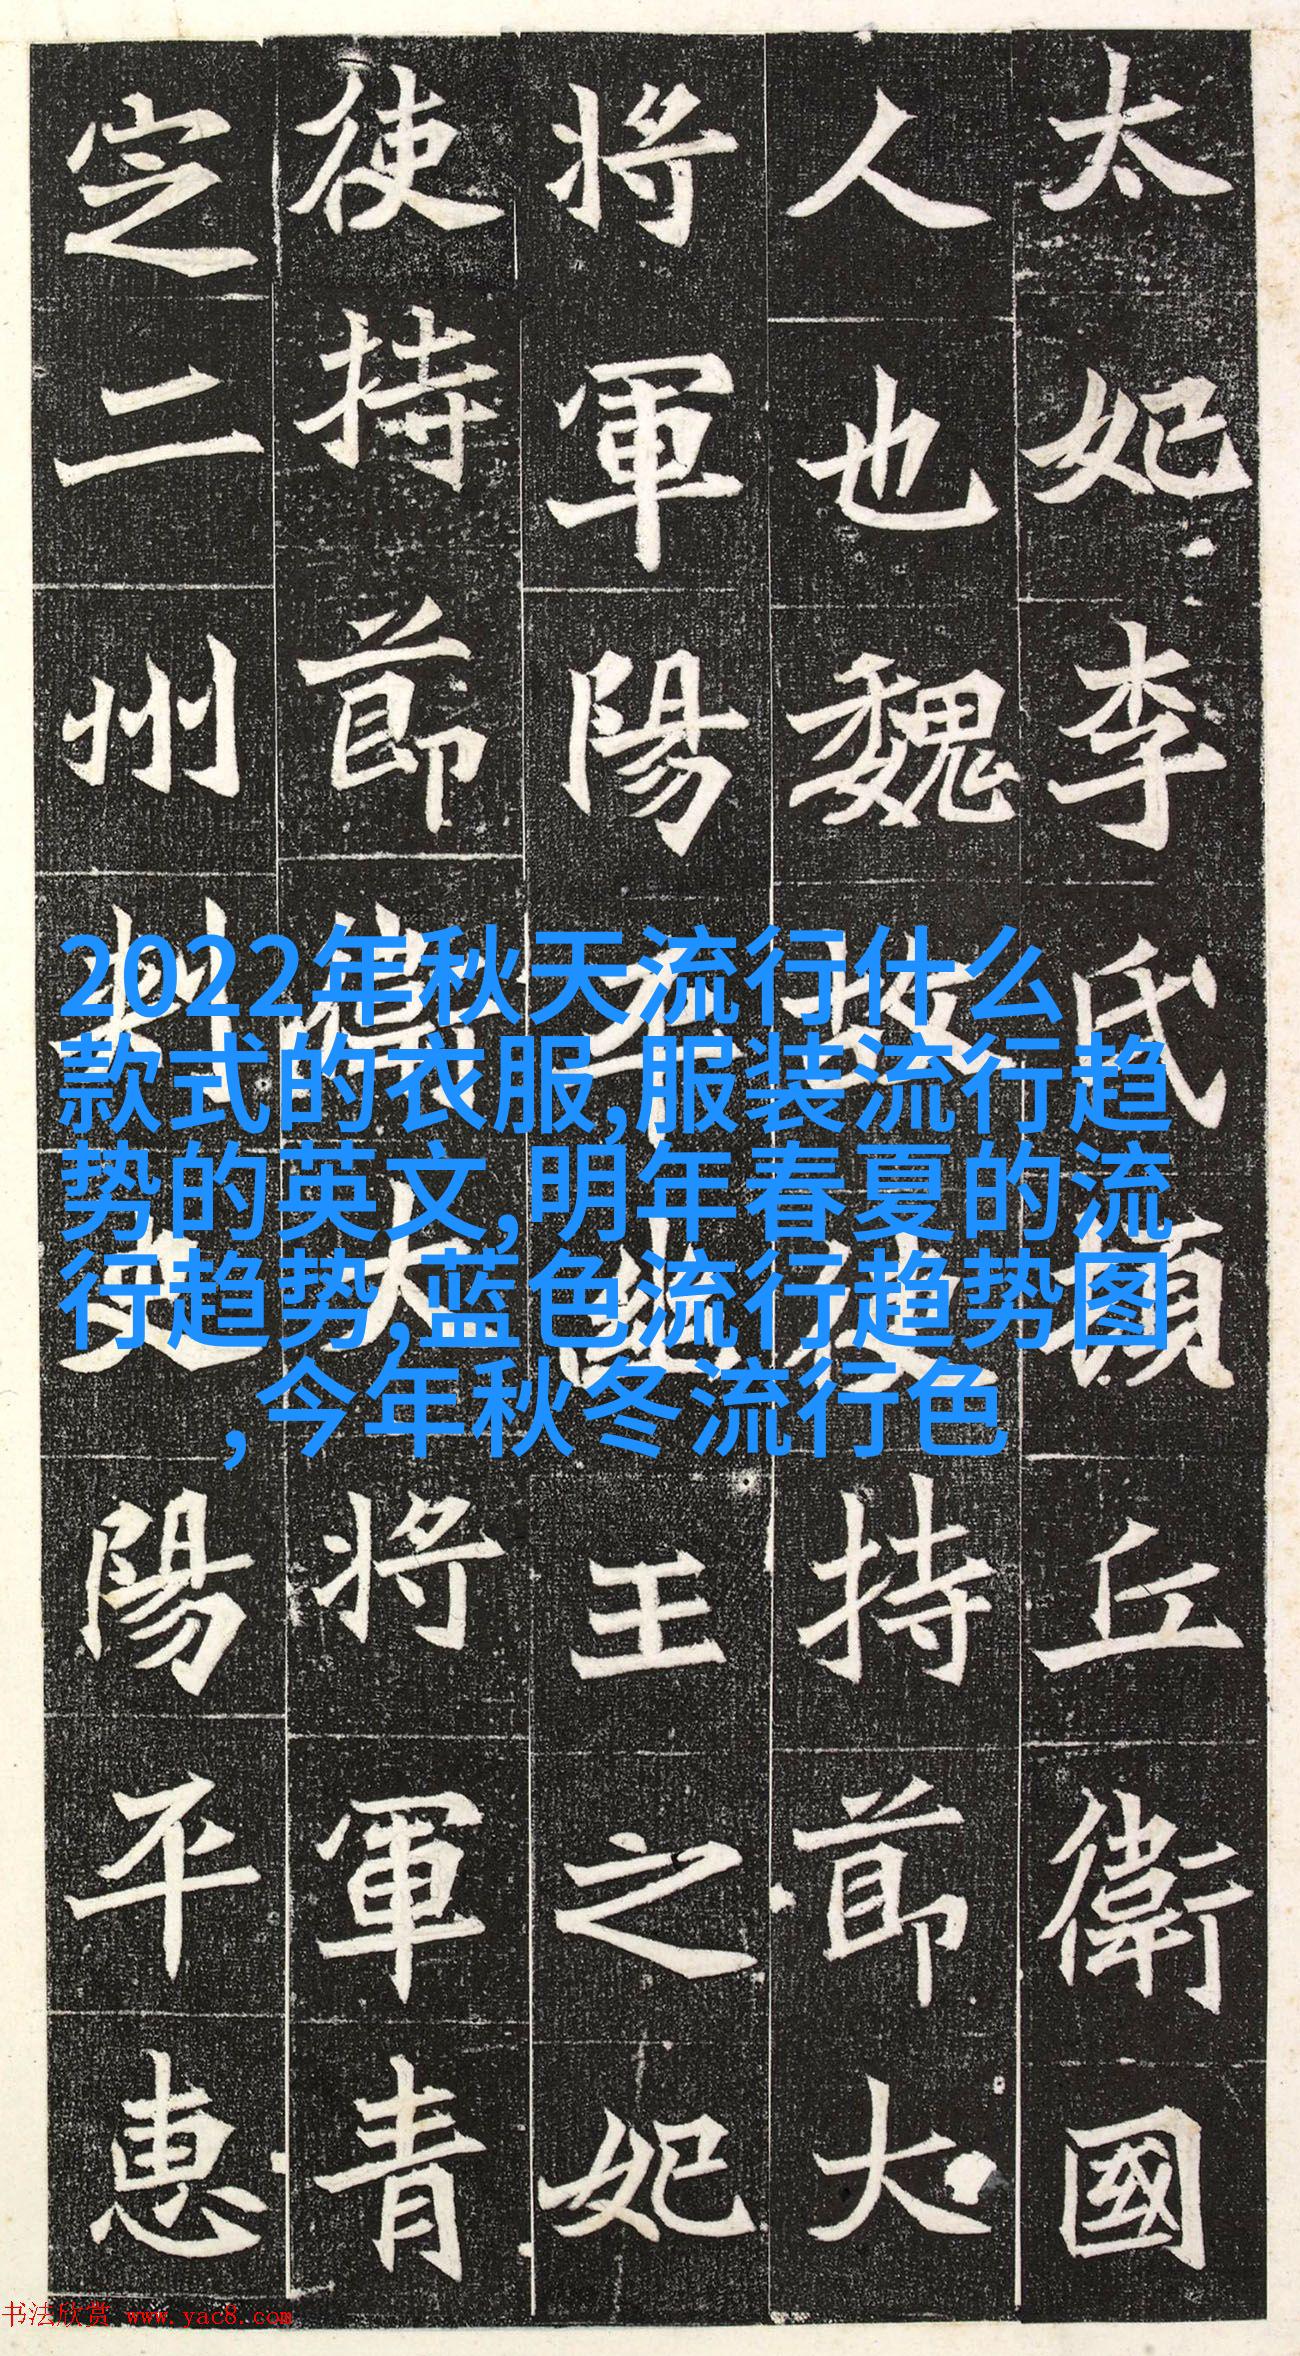 太妃李氏頓丘衛國
人也魏故使持莭大
将軍陽平幽王之妃
使持莭衛大将軍青
定二州刾史陽平惠
2022年秋天流行什么
款式的衣服,服装流行趋
势的英文,明年春夏的流
行趋势,蓝色流行趋势图
,今年秋冬流行色
书法欣赏 www.yac8.com